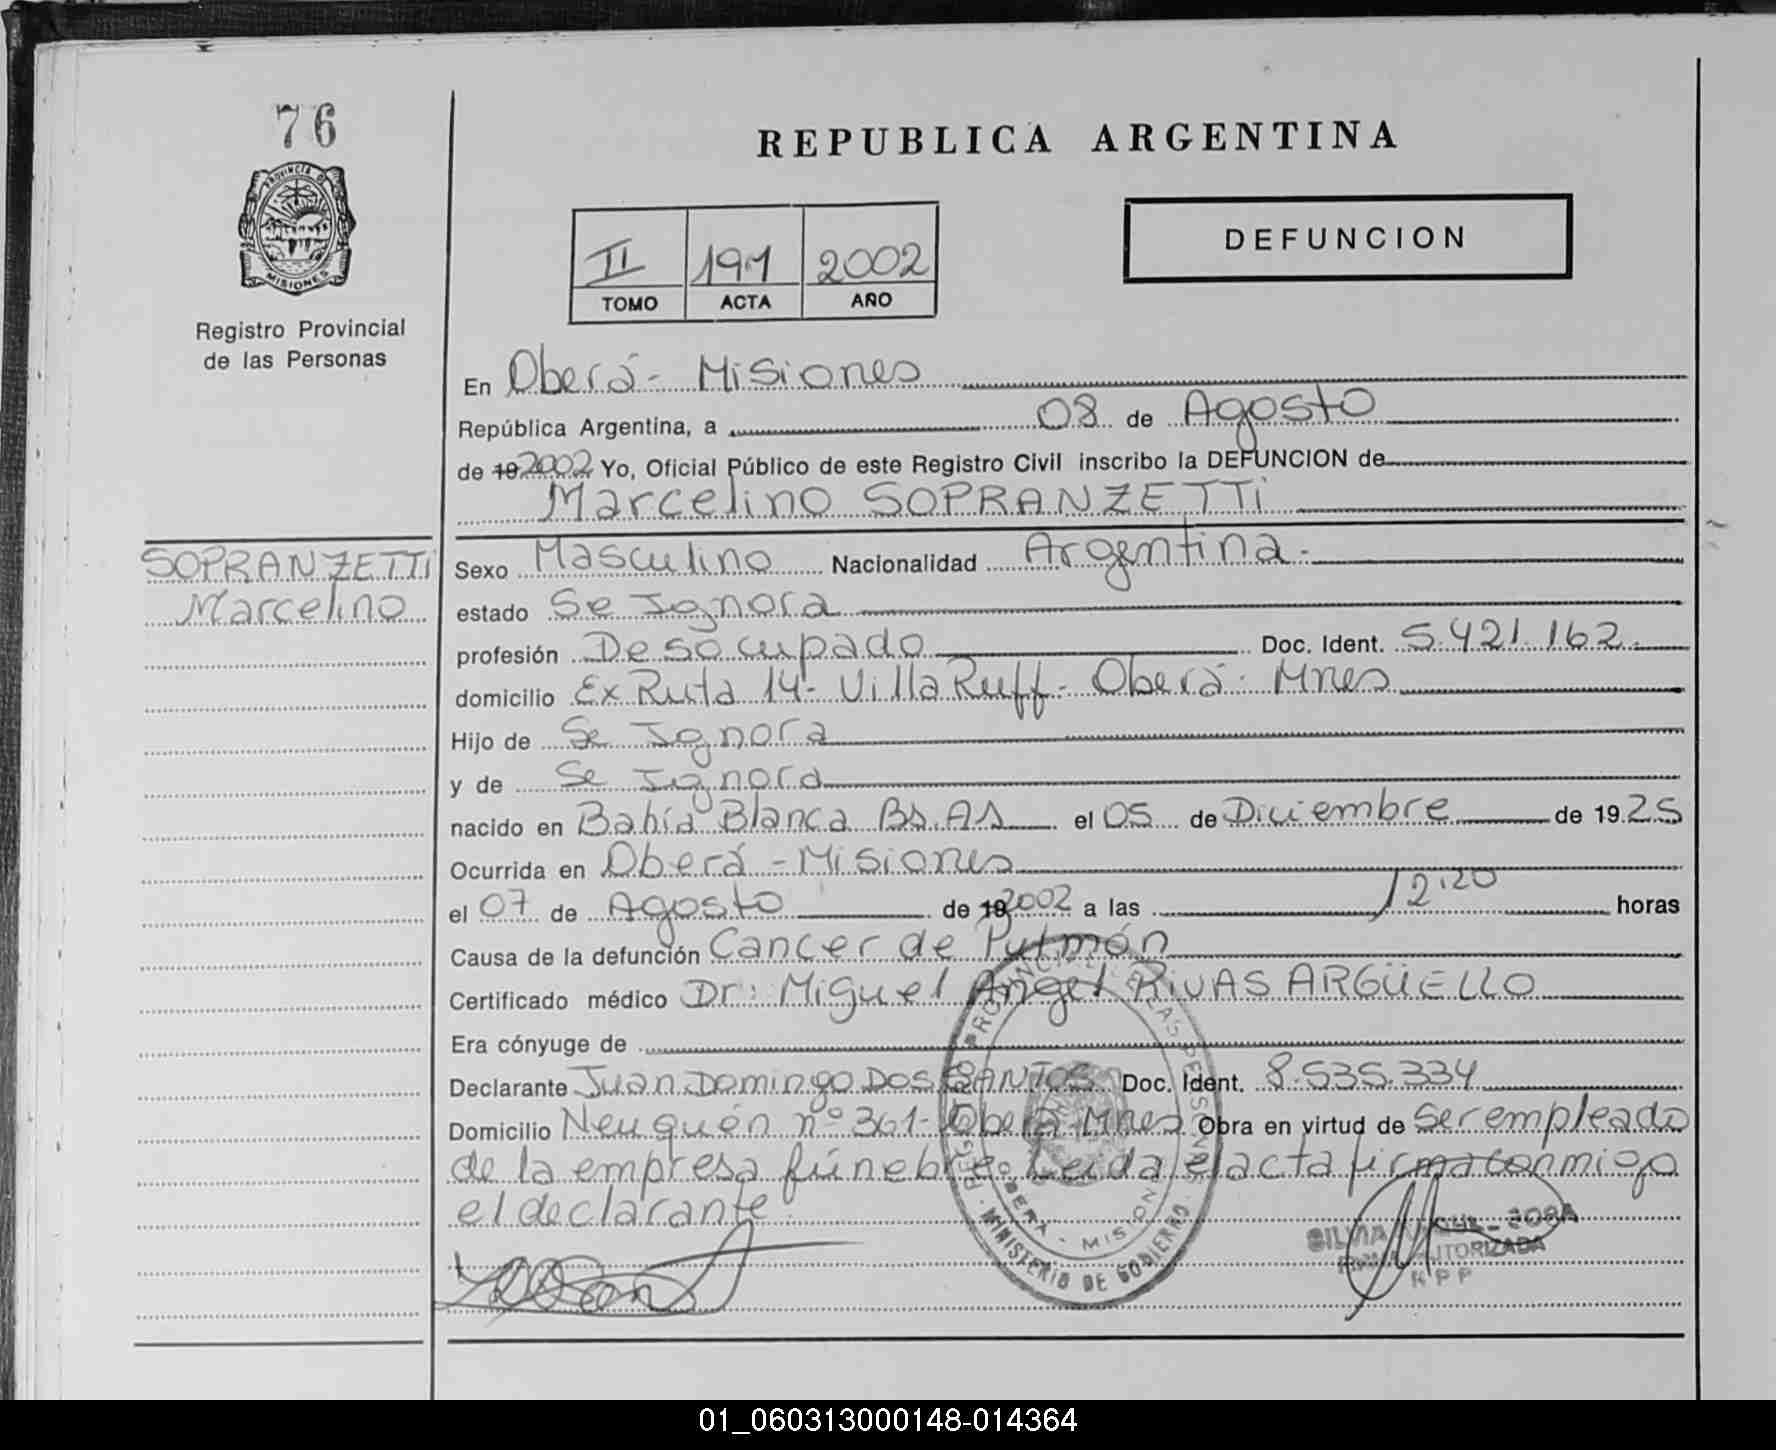 76
PROVINCIA DE
MISIONES
Registro Provincial
de las Personas
REPUBLICA ARGENTINA
II 191 2002
TOMO ACTA AÑO
DEFUNCION
En Oberá - Misiones
República Argentina, a 08 de Agosto
de 19 2002 Yo, Oficial Público de este Registro Civil inscribo la DEFUNCION de
Marcelino SOPRANZETTi
SOPRANZETTi
Marcelino
Sexo Masculino Nacionalidad Argentina.
estado Se Ignora
profesión Desocupado Doc. Ident. 5.421.162.
domicilio Ex Ruta 14 - Villa Ruff - Oberá - Mnes
Hijo de Se Ignora
y de Se Ignora
nacido en Bahía Blanca Bs. As el 05 de Diciembre de 1925
Ocurrida en Oberá - Misiones
el 07 de Agosto de 19 2002 a las 12.20 horas
Causa de la defunción Cancer de Pulmón
Certificado médico Dr: Miguel Angel RIVAS ARGÜELLO
Era cónyuge de
Declarante Juan Domingo DOS SANTOS Doc. Ident. 8.535.334
Domicilio Neuquén nº 361 - Oberá Mnes Obra en virtud de Ser empleado
de la empresa fúnebre. Leida el acta firma conmigo
el declarante.
OBERA - MISIONES
MINISTERIO DE GOBIERNO
SILVIA SOSA
FIRMA AUTORIZADA
R P P
01_060313000148-014364